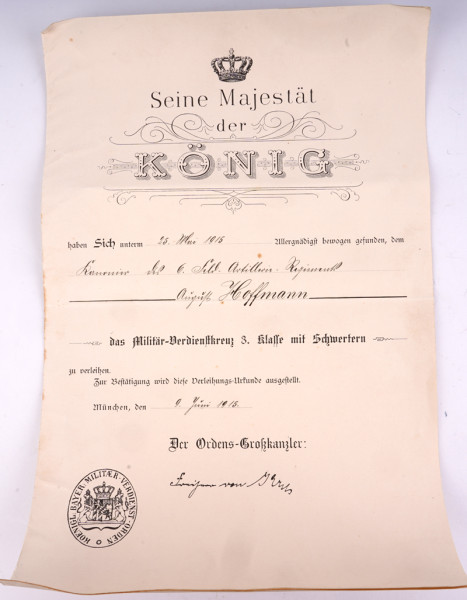 Seine Majestät
der
KÖNIG
haben Sich unterm 25. Mai 1915 Allergnädigst bewogen gefunden, dem
Kanonier des 6. Feld-Artillerie-Regiments
August Hoffmann
das Militär-Verdienstkreuz 3. Klasse mit Schwertern
zu verleihen.
Zur Bestätigung wird diese Verleihungs-Urkunde ausgestellt.
München, den 9. Juni 1915.
Der Ordens-Großkanzler:
Freiherr von
KOENIGL. BAYER. MILITÆR-VERDIENST-ORDEN